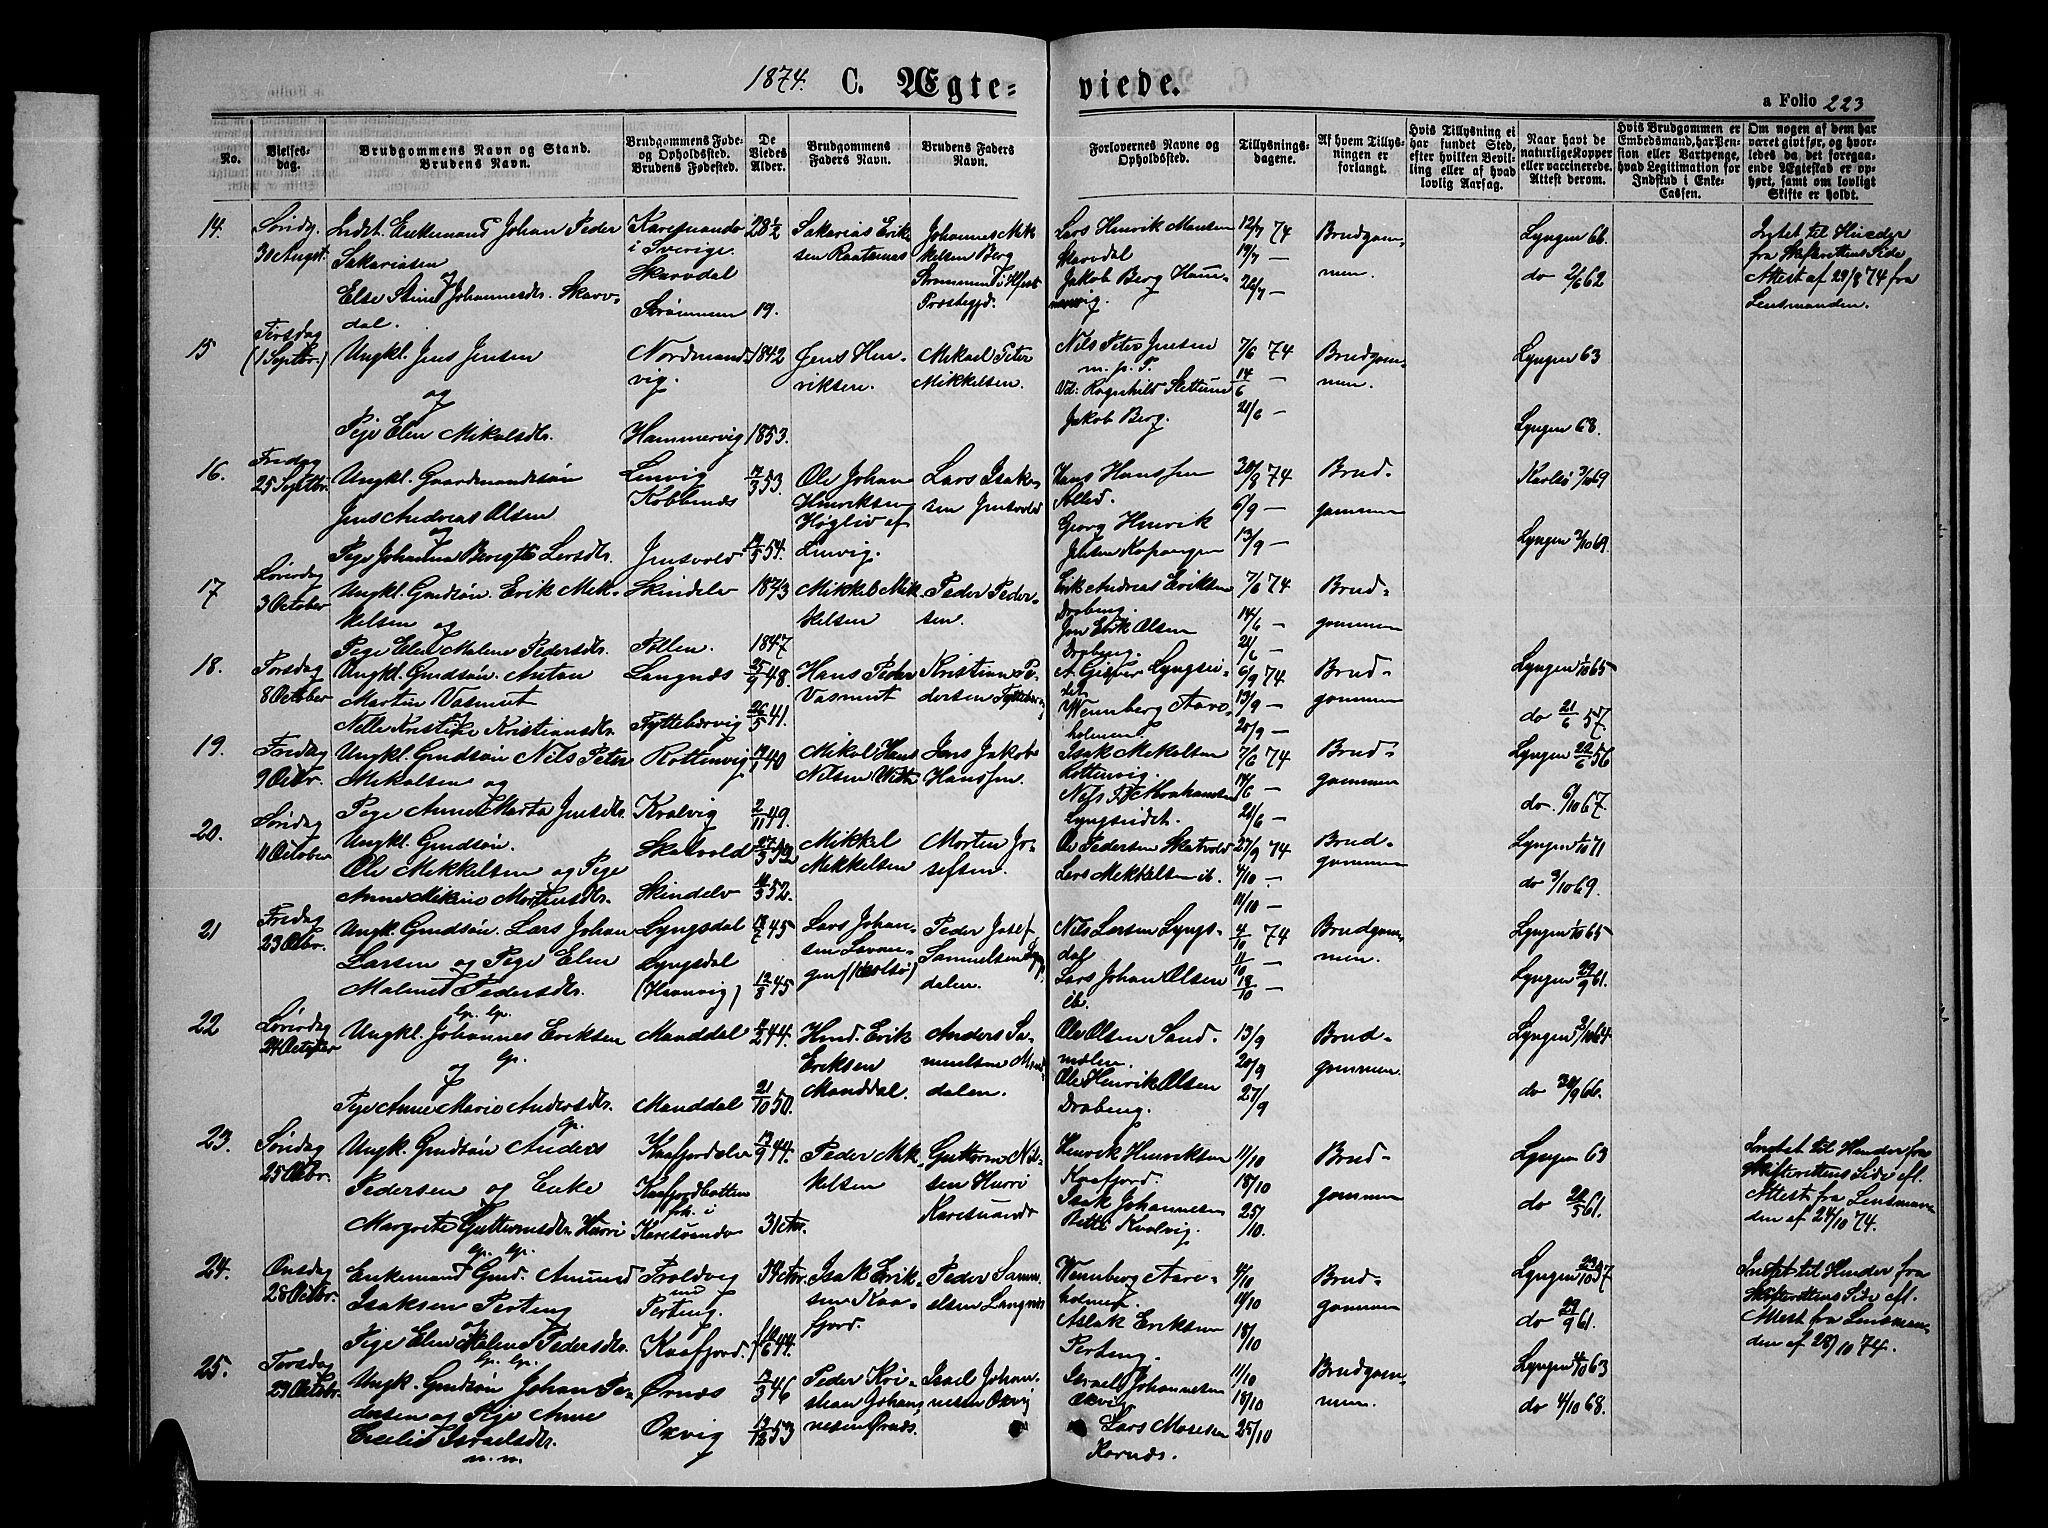 1874. C. Ægte-
viede.
a Folio 223
No.
Vielses-
dag.
Brudgommens Navn og Stand.
Brudens Navn.
Brudgommens Føde-
og Opholdssted.
Brudens Fødested.
De
Viedes
Alder.
Brudgommens
Faders Navn.
Brudens Faders
Navn.
Forlovernes Navne og
Opholdssted.
Tillysnings-
dagene.
Af hvem Tillys-
ningen er
forlangt.
Hvis Tillysning ei
har fundet Sted,
efter hvilken Bevil-
ling eller af hvad
lovlig Aarsag.
Naar havt de
naturlige Kopper
eller vaccinerede.
Attest derom.
Hvis Brudgommen er
Embedsmand, har Pen-
sion eller Vartpenge,
hvad Legitimation for
Indskud i Enke-
Cassen.
Om nogen af dem har
været givt før, og hvor-
ledes da det foregaa-
ende Ægteskab er op-
hørt, samt om lovligt
Skifte er holdt.
14.
Søndag
30 August
Indst. Enkemand Johan Peder
Sakariasen
og
Else Stina Johannesdr. Skarv-
dal.
Karesuando
i Sverige.
Skarvdal
Strømmen
28 1/2
19.
Sakarias Erik
sen Raatamas
Johannes Mik
kelsen Berg
Strømmen
Præstegjd.
Lars Henrik Monsen
Skarvdal
Jakob Berg Ham-
nervig.
12/7 74
19/7 —
26/7 —
Brudgom-
men.
Lyngen 66.
do 2/6 62
Intet til Hinder
fra Skifterettens Side
Attest af 29/8 74 fra
Lensmanden.
15
Tirsdag
(1 Septbr.)
Ungkl. Jens Jensen
og
Pige Elen Mikalsdr.
Nordmands-
vig.
Hammervig
1842
1853.
Jens Hen-
riksen.
Mikael Peter
Mikkelsen.
Nils Peter Jensen
m. p. P.
Jakob Berg.
7/6 74
14/6 —
21/6 —
Brudgom-
men.
Lyngen 63
Lyngen 68.
16.
Fredag
25 Septbr.
Ungkl. Gaardmandssøn
Jens Andreas Olsen
og
Pige Johanna Beregitte Larsdr.
Lenvig
Kobbenes
Jensvold
7/3 53.
5 54.
Ole Johan
Henriksen
Høgliv af
Lenvig.
Lars Isak-
sen Jensvold
Hans Hanssen
Georg Henrik
Jensen Kopangen
30/8 74
6/9 —
13/9 —
Brud-
gommen
Karlsø 3/10 69
Lyngen 3/10 69.
17
Løverdag
3 October
Ungkl. Gmdsøn. Erik Mik-
kelsen og
Pige Elen Malene Pedersdr.
Skindelv
Pollen.
1843
1847
Mikkel Mik
kelsen
Peder Peder-
sen.
Erik Andreas Eriksen
Drabeng.
Jon Erik Olsen
Drabeng.
7/6 74
14/6 —
21/6 —
Brud-
gommen
18.
Torsdag
8 October
Ungkl. Gmdsøn. Anton
Martin Vasmut
og
Nelle Kristine Kristiansdr.
Langnæs
Fyttebærvig
25/9 48.
26/5 41.
Hans Peder
Vasmut
Kristian Pe-
dersen
A. Giæver Lyngsei-
det
Wennberg Aarø-
holmen.
6/9 74
13/9 —
20/9 —
Brud-
gommen
Lyngen 1/10 65
do 21/6 57.
19.
Fredag
9 Octbr.
Ungkl. Gmdsøn Nils Peter
Mikalsen og
Pige Anne Marta Jensdr.
Rottenvig
Kvalvig
40
2/11 49.
Mikal Hans
Nilsen
Jens Jakob
Hanssen.
Isak Mikalsen
Rottenvig.
Nils F. Abrahamsen
Lyngseidet.
7/6 74
14/6 —
21/6 —
Brud-
gommen
Lyngen 22/6 56
do. 6/10 67.
20.
Søndag
11 October
Ungkl. Gmdsøn.
Ole Mikkelsen og Pige
Anne Mikine Mortensdr.
Skatvold
Skindelv
52.
Mikkel
Mikkelsen
Morten Jo-
sefsen.
Ole Pedersen Skatvold
Lars Mikkelsen ib.
27/9 74
4/10 —
11/10 —
Brud-
gommen
Lyngen 1/10 71
do 3/10 69.
21
Fredag
23 Octbr.
Ungk. Gmdsøn. Lars Johan
Larsen og Pige Elen
Malene Pedersdr.
Lyngsdal
Lyngsdal
7 45
12/8 45
Lars Johan-
sen Lavan-
gen (Karlsø)
Peder Josef
Samuelsen Lyngs-
dalen.
Nils Larsen Lyngs-
dal
Lars Johan Olsen
ib.
4/10 74
11/10 —
18/10 —
Brudgom-
men.
Lyngen 1/10 65
Lyngen 29/9 61.
22
Løverdag
24 October
lp. lp.
Ungkl. Johannes Eriksen
og lp.
Pige Anne Marie Andersdr.
lp.
Manddal
Manddal
44.
21/10 50.
Hmd. Erik
Eriksen
Manddal.
Anders Sa-
muelsen Mand
dalen.
Ole Olsen Sand-
mælen.
Ole Henrik Olsen
Drabeng.
13/9
20/9
27/9
Brud-
gommen.
Lyngen 3/10 64
do 30/9 66.
23.
Søndag
25 Octbr.
Ungk. Gmdsøn Anders
Pedersen og Enke
Margrete Guttormsdr. Hurri
lp. lp.
Kaafjordelv
Kaafjordbotten
fød. i
Karesuando
/9 44.
31 Aar.
Peder Mik
kelsen
Guttorm Nil-
sen Hurri
Karesuando
Henrik Henriksen
Kaafjord.
Isak Johannesen
Kvalvig.
11/10
18/10
25/10.
Brud-
gommen
Lyngen 63
do 5 61.
Intet til Hinder fra
Skifterettens Side efl.
Attest fra Lensman-
den af 24/10 74.
24.
Onsdag
28 Octbr.
Enkemand Gmd. Amund
Isaksen Perteng
og
Pige Elen Malene Pedersdr.
lp. lp.
Troldvig
nu
Perteng.
Kaafjord.
6 44.
Isak Erik-
sen Kaa-
fjord.
Peder Samu-
elsen Langnes
Wennberg Aarø-
holmen.
Aslak Eriksen
Perteng.
4/10
11/10
18/10
Brud-
gommen
Lyngen 10 57
do 29/9 61.
Intet til Hinder fra
Skifterettens Side efl.
Attest fra Lensman-
den af 28/10 74.
25.
Torsdag
29 Octbr.
Ungk. Gmdsøn Johan Pe-
dersen og Pige Anne
Cecilie Israelsdr.
n. n.
Ørnæs
Oxvig
/3 46
/12 53
Peder Kri-
stian Johan-
nesen Ørnæs.
Israel Johan-
nesen Oxvig
Israel Johannesen
Oxvig
Lars Mosesen
Kornæs.
11/10
18/10
25/10
Brudgom-
men.
Lyngen 4/10 63
do 4/10 68.